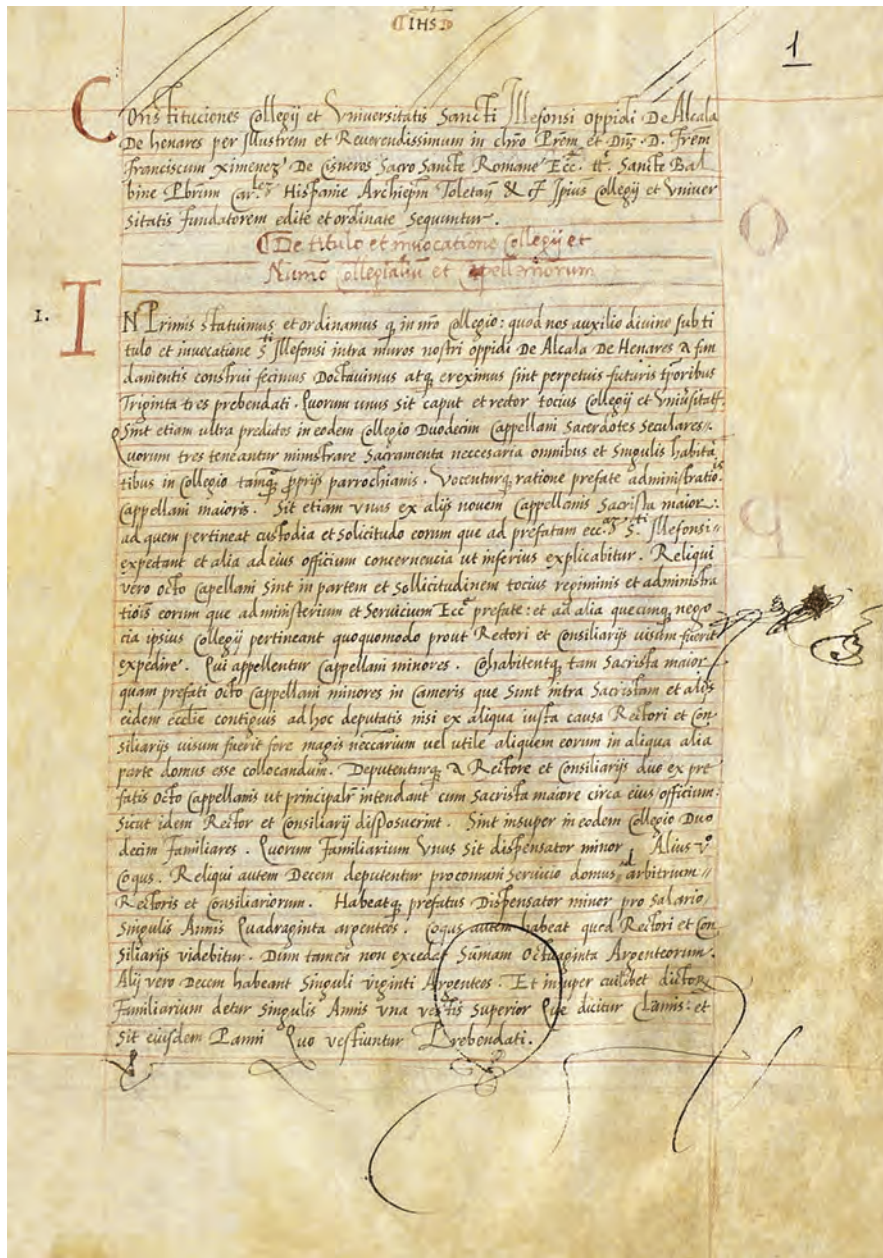 IHS
1
Constituciones Collegij et Vniversitatis Sancti Illefonsi oppidi De Alcala
De henares per Illustrem et Reverendissimum in chrō Prem et Dnȝ · D. Frem
Franciscum Ximenez De Cisneros Sacro Sancte Romane Ecc. tt. Sancte Bal
bine Pbrūm Car. Hispanie Archiepm Toletan̄ & cͭ Ipius Collegij et Vniver
sitatis fundatorem edite et ordinate Sequuntur.
De titulo et invocatione Collegij et
Numo Collegialiū et Capellanorum
1.
IN Primis statuimus et ordinamus q̨ in nrō Collegio: quod nos auxilio divino sub ti
tulo et invocatione S.ti Illefonsi intra muros nostri oppidi De Alcala De Henares A fun
damentis construi fecimus Doctavimus atq̨ ereximus sint perpetuis futuris tporibus
Triginta tres prebendati. Quorum unus sit caput et rector tocius Collegij et Vniūsitatᷤ.
Sint etiam ultra predictos in eodem Collegio Duodecim Cappellani Sacerdotes Seculares.
Quorum tres teneantur ministrare Sacramenta neccesaria omnibus et Singulis habitā
tibus in Collegio tamq̨ proprijs parrochianis. Vocenturq̨ ratione prefate administratiois
Cappellani maioris. Sit etiam vnus ex alijs novem Cappellanis Sacrista maior:
ad quem pertineat custodia et solicitudo eorum que ad prefatam ecc. S.ti Illefonsi
expectant et alia ad eius officium concernencia ut inferius explicabitur. Reliqui
vero octo Capellani sint in partem et sollicitudinem tocius regiminis et administra
tiōis eorum que ad ministerium et Servicium Ecc̄e prefate: et ad alia quecunq̨ nego
cia ipsius Collegij pertineant quoquomodo prout Rectori et Consiliarijs uisum fuerit
expedire. Qui appellentur Cappellani minores. Cohabitentq̨ tam Sacrista maior
quam prefati octo Cappellani minores in Cameris que Sunt intra Sacristam et alijs
eidem ecclīe contiguis ad hoc deputatis nisi ex aliqua iusta causa Rectori et Con
siliarijs uisum fuerit fore magis neccarium uel utile aliquem eorum in aliqua alia
parte domus esse collocandum. Deputenturq̨ A Rectore et Consiliarijs duo ex pre
fatis octo Cappellanis ut principalr̄ intendant cum Sacrista maiore circa eius officium:
Sicut idem Rector et Consiliarij disposuerint. Sint insuper in eodem Collegio Duo
decim Familiares. Quorum Familiarium Vnus Sit dispensator minor Alius vº
Coqus. Reliqui autem Decem deputentur pro comuni Servicio domus ad arbitrium
Rectoris et Consiliariorum. Habeatq̨ prefatus Dispensator minor pro salario
Singulis Annis Quadraginta argenteos. Coqus autem habeat quod Rectori et Con
siliarijs videbitur. Dum tamen non excedat Sūmam Octuaginta Argenteorum.
Alij vero Decem habeant Singuli viginti Argenteos. Et insuper cuilibet dictoꝝ
Familiarium detur Singulis Annis vna vestis Superior Que dicitur Clamis: et
Sit eiusdem Panni Quo vestiuntur Prebendati.